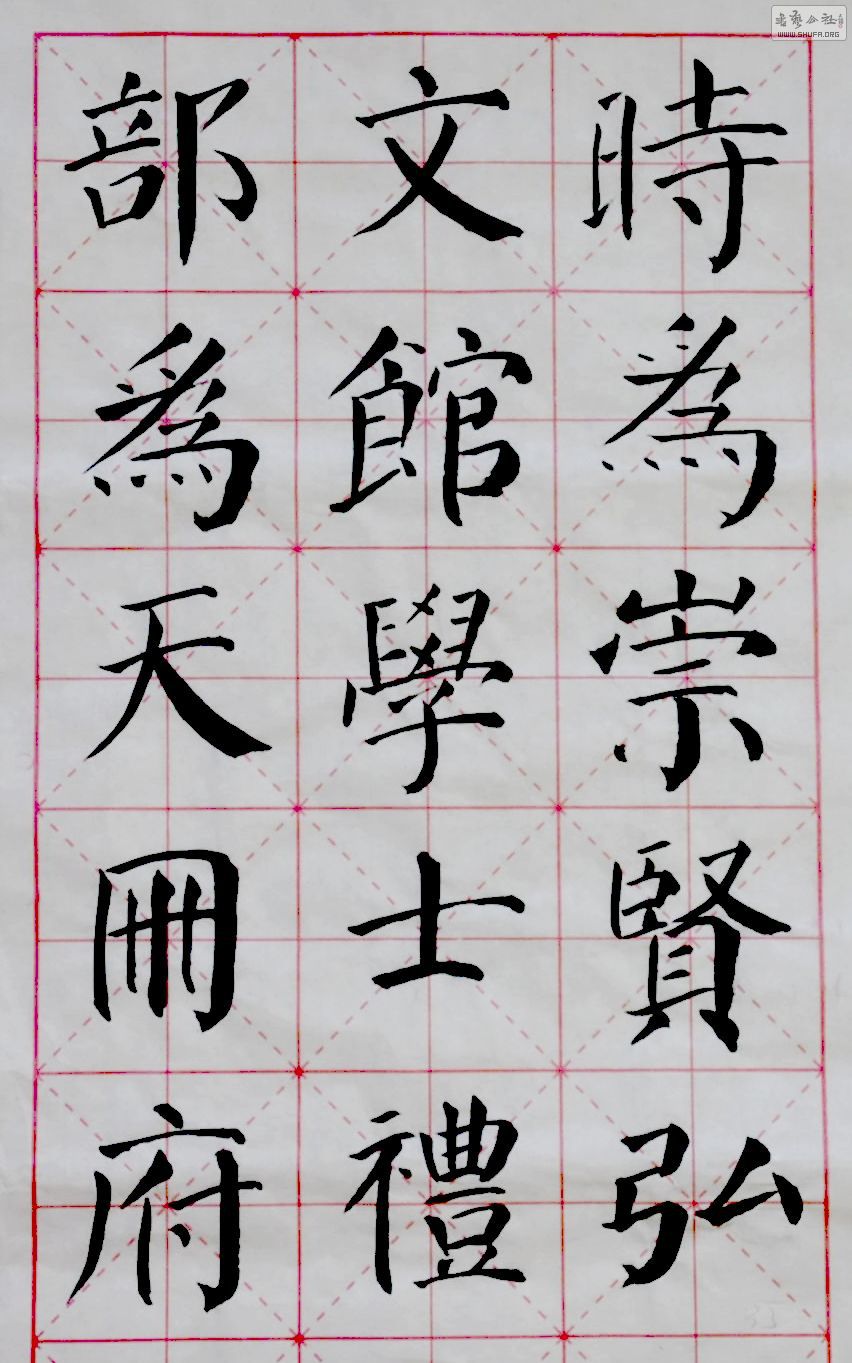 時為崇賢弘
文館學士禮
部為天冊府
書藝公社
WWW.SHUFA.ORG